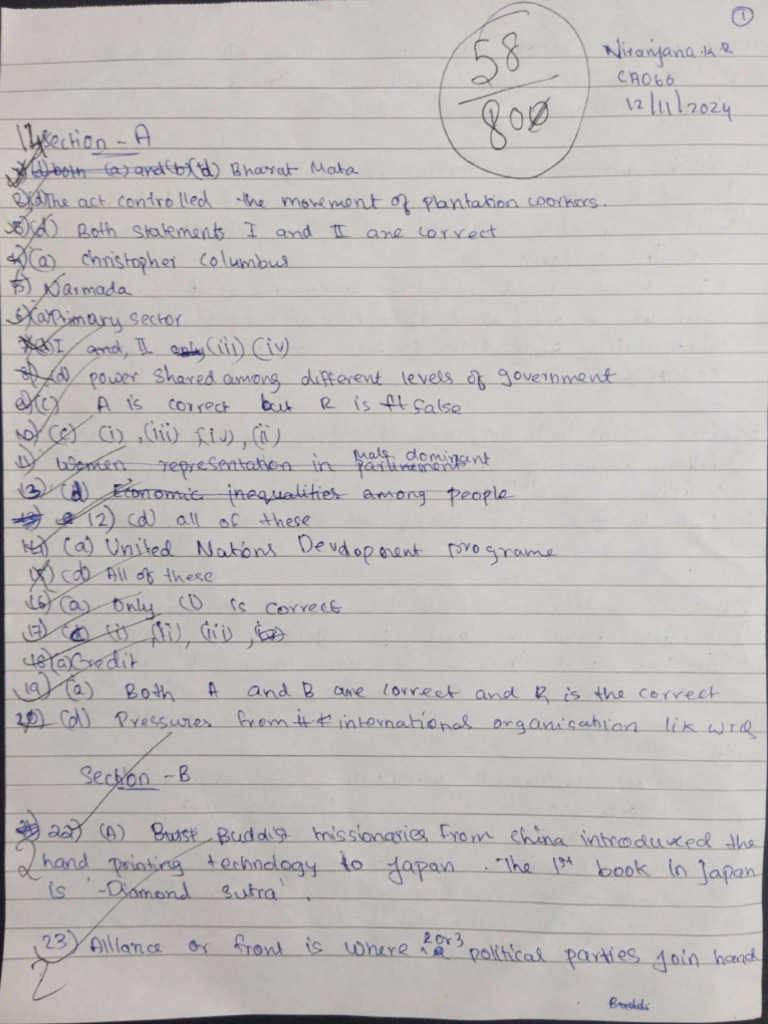 1
58
80
Niranjana.K.R
CA066
12/11/2024
Section - A
1) (d) both (a) and (b) (d) Bharat Mata
2) (d) The act controlled the movement of plantation workers.
3) (d) Both statements I and II are correct
4) (a) christopher columbus
5) Narmada
6) (a) Primary sector
I and, II only (iii) (iv)
8) (d) power shared among different levels of government
9) (c) A is correct but R is ft false
10) (c) (i) , (iii) , (iv) , (ii)
male dominant
11) Women representation in parliments
13) (d) Economic inequalities among people
12) (d) all of these
14) (a) United Nations Devdopment programe
15) (d) All of these
16) (a) Only (i) is correct
17) (c) (i) , (ii) , (iii) , (iv)
18) (a) Credit
19) (a) Both A and B are correct and R is the correct
20) (d) Pressures from international organisation lik WTO
Section - B
22) (A) Buddist missionaries from china introduced the
2 hand printing technology to Japan . The 1st book in Japan
is 'Diamond Sutra' .
23) Alliance or front is where 2 or 3 political parties join hand
2
Buddi